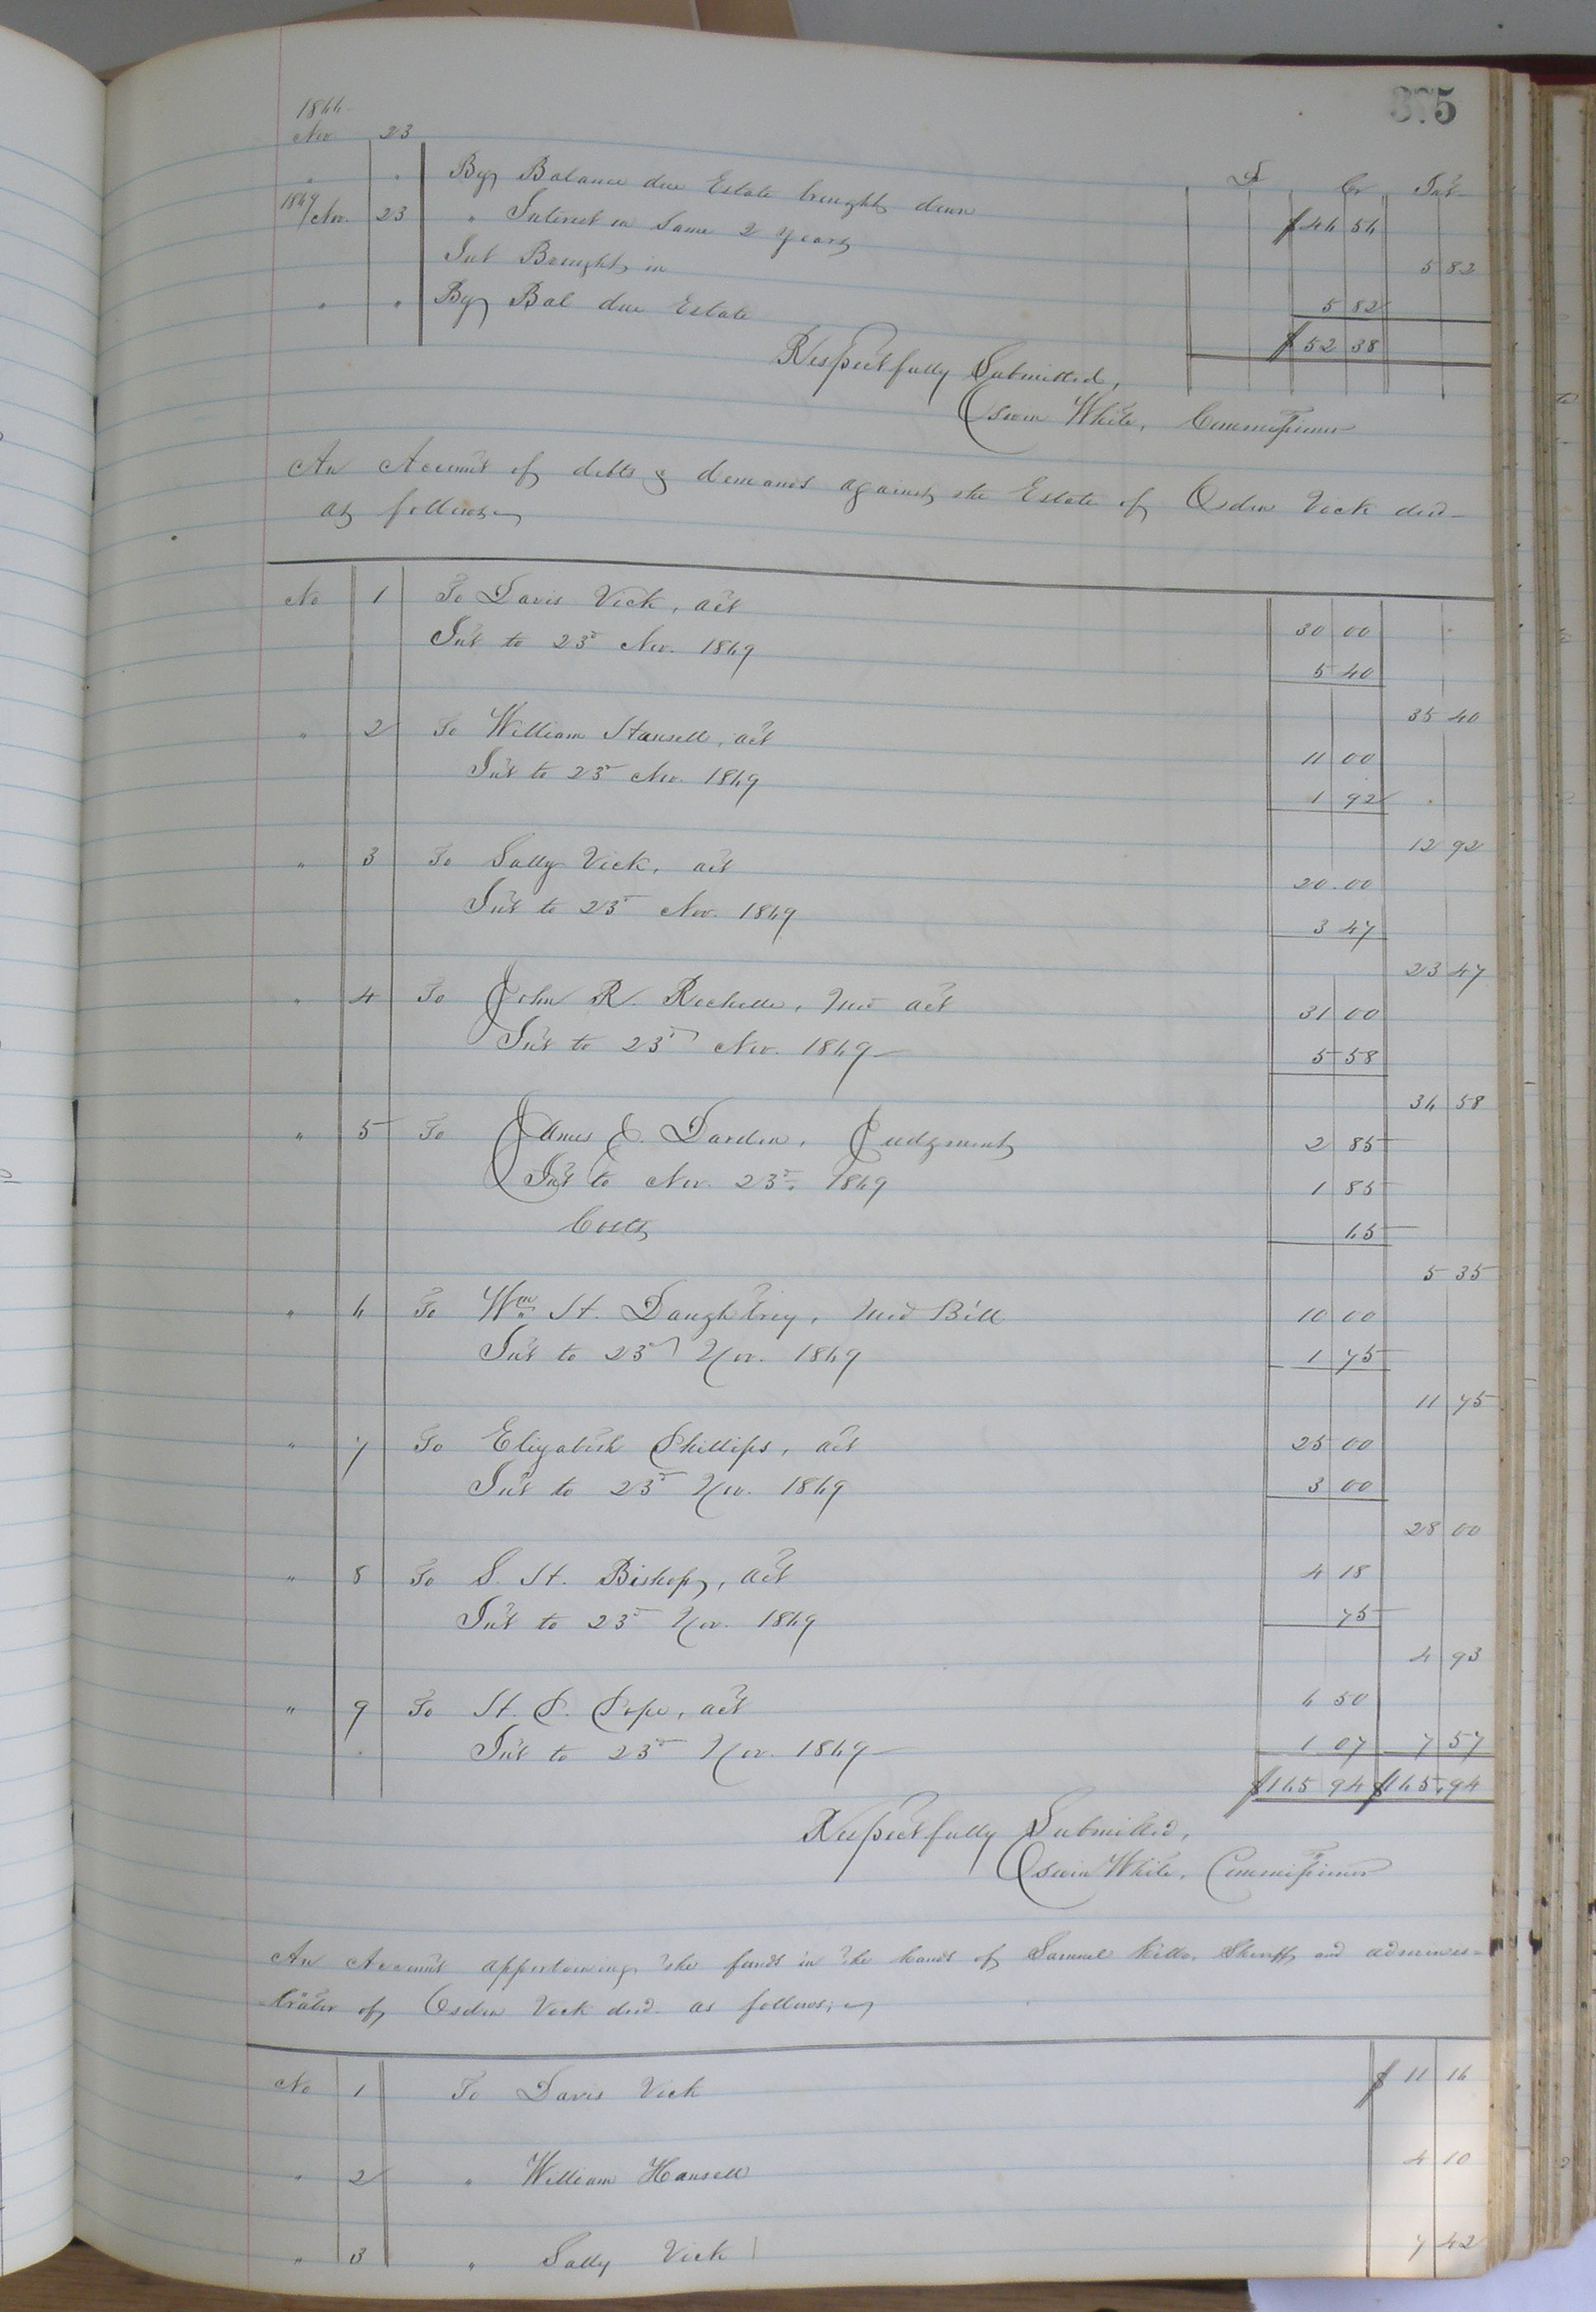 375
1866
Nov 23
Dr Cr Int
" " By Balance due Estate brought down $46 56
1869/Nov. 23 " Interest on Same 2 years 5 82
Int Brought in 5 82
" " By Bal due Estate $52 38
Respectfully Submitted,
Oswin White, Commissioner
An Account of debts & demands against the Estate of Osden Vick decd
as follows
No 1 To Davis Vick, act 30 00
Int to 23d Nov. 1869 5 40
35 40
" 2 To William Hansell, act 11 00
Int to 23d Nov. 1869 1 92
12 92
" 3 To Sally Vick, act 20.00
Int to 23d Nov. 1869 3 47
23 47
" 4 To John R. Rochelle, Med act 31 00
Int to 23d Nov. 1869 5 58
36 58
" 5 To James E. Darden, Judgment 2 85
Int to Nov. 23d, 1869 1 85
Costs 65
5 35
" 6 To Wm H. Daughtrey, Med Bill 10 00
Int to 23d Nov. 1869 1 75
11 75
" 7 To Elizabeth Phillips, act 25 00
Int to 23d Nov. 1869 3 00
28 00
" 8 To S. H. Bishop, act 4 18
Int to 23d Nov. 1869 75
4 93
" 9 To H. P. Pope, act 6 50
Int to 23d Nov. 1869 1 07 7 57
$165 94 $165.94
Respectfully Submitted,
Oswin White, Commissioner
An Account apportioning the funds in the hands of Samuel Kello, Sheriff and adminis-
trator of Osden Vick decd as follows;
No 1 To Davis Vick $11 16
" 2 " William Hansell 4 10
" 3 " Sally Vick 7 42